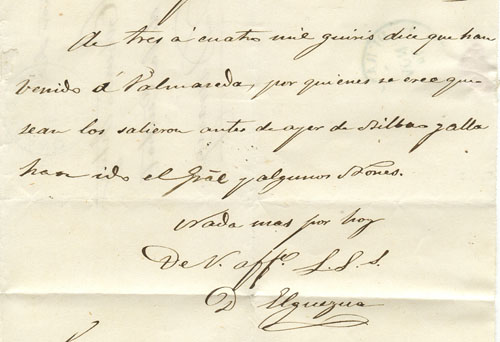 de tres á cuatro mil guiris dice que han
venido á Valmaseda, por quienes se cree que
sean los salieron antes de ayer de Bilbao y alla
han ido el Gral y algunos Bones.
Nada mas por hoy
De V. affmo. S. S. S.
D Elguezua